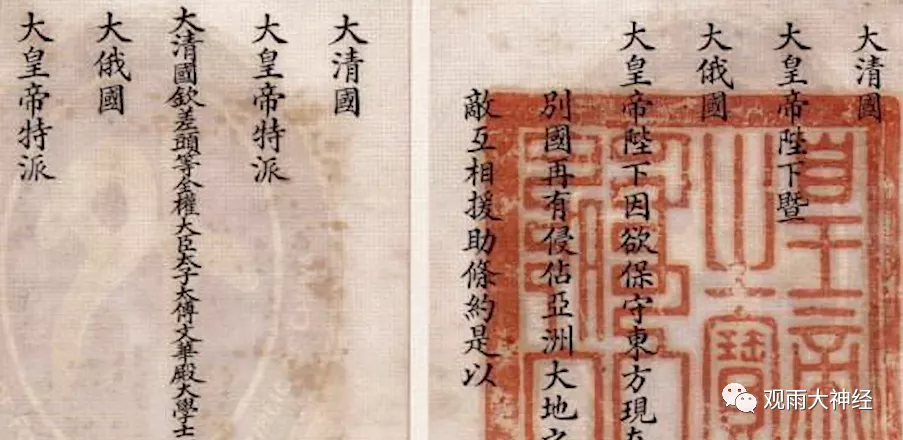 大清國
大皇帝陛下暨
大俄國
大皇帝陛下因欲保守東方現在
別國再有侵佔亞洲大地之
敵互相援助條約是以
皇帝之寶
大清國
大皇帝特派
大清國欽差頭等全權大臣太子太傅文華殿大學士
大俄國
大皇帝特派
观雨大神经